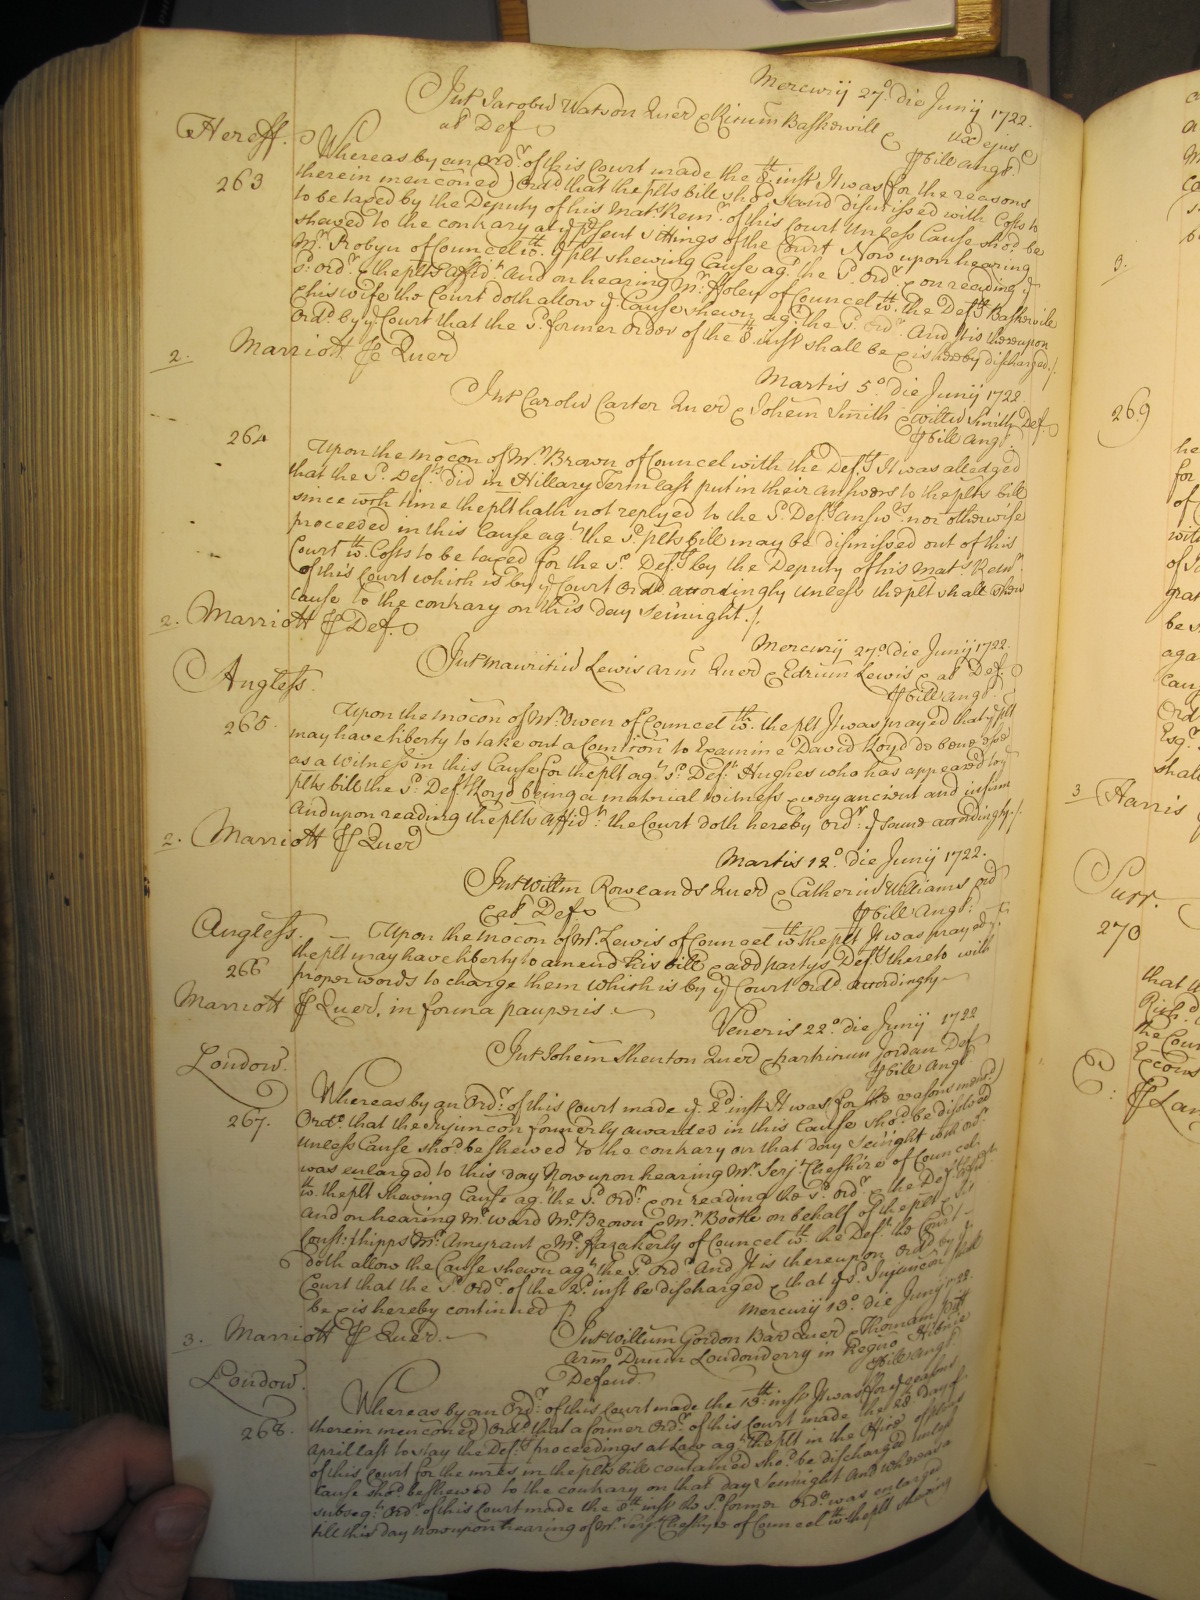 Mercurij 27.o die Junij 1722.
Int Jacobu Watson Quer & Ricum Baskervill & ux ejus &
al Def
Hereff.
p bill angl.
Whereas by an Ord.r of this Court made the 8.th inst It was for the reasons
263
therein menconed) Ord.d that the plts bill sho.d stand dismissed with Costs to
to be taxed by the Deputy of his Mat.s Rem.r of this Court Unless Cause sho.d be
shewed to the contrary at y.e p.sent sittings of the Court Now upon hearing
M.r Robyn of Councel w.th y.e plt shewing Cause ag.t the s.d Ord.r & on reading y.e
s.d ord.r & the plts affid.t And on hearing M.r Foley of Councel w.th the Def.ts Baskervile
& his wife the Court doth allow y.e Cause shewn ag.t the s.d Ord.r And It is thereupon
Ord.d by y.e Court that the s.d former Order of the 8.th inst shall be & is hereby discharged./
2. Marriott p Quer
Martis 5.o die Junij 1722.
Int Carolu Carter Quer & Johem Smith & Willu Smith Def.
p bill Angl.
264
Upon the mocon of M.r Brown of Councel with the Def.ts It was alledged
that the s.d Def.ts did in Hillary Term last put in their answers to the plts bill
since wch time the plt hath not replyed to the s.d Def.ts answ.rs nor otherwise
proceeded in this Cause ag.t the s.d plts bill may be dismissed out of this
Court w.th Costs to be taxed for the s.d Def.ts by the Deputy of his Mat.s Rem.r
of this Court which is by y.e Court Ord.d accordingly unless the plt shall shew
cause to the contrary on this day Sennight./
2. Marriott p Def.
Mercurij 27.o die Junij 1722.
Int Mauritiu Lewis arm Quer & Edrum Lewis & al Def.
Angless.
p bill angl.
265.
Upon the mocon of M.r Owen of Councel w.th the plt It was prayed that y.e plt
may have liberty to take out a Comicon to Examine David Lloyd de bene esse
as a Witness in this Cause for the plt ag.t s.d Def.t Hughes who has appeared to y.e
plts bill the s.d Def.t Lloyd being a material witness & very ancient and infirm
And upon reading the plts Affid.t the Court doth hereby Ord.r y.e same accordingly./
2. Marriott p Quer
Martis 12.o die Junij 1722.
Int Willm Rowlands Quer & Catherin Williams vid
& al Def.
p bill Angl.
Angless.
Upon the mocon of M.r Lewis of Councel w.th the plt It was prayed y.t
the plt may have liberty to amend his bill & add partys Def.ts thereto with
266
proper words to charge them which is by y.e Court Ord.d accordingly
Marriott p Quer, in forma pauperis.
Veneris 22.o die Junij 1722
Int Johem Shenton Quer & Jordan Def
p bill Angl
London.
Whereas by an Ord.r of this Court made y.e 2.d inst It was for the reasons menc.d)
267.
Ord.d that the Injuncon formerly awarded in this Cause sho.d be disolved
unless Cause sho.d be shewed to the contrary on that day Senight wch ord.r
was enlarged to this day Now upon hearing M.r Serj.t Cheshire of Councel
w.th the plt shewing Cause ag.t the s.d Ord.r & on reading the s.d ord.r & the Def.ts affid
And on hearing M.r Ward M.r Brown & M.r Bootle on behalf of the plt & Sir
Const: Phipps M.r Amyrant & M.r Fazakerly of Councel w.th the Def.t the Court
doth allow the Cause shewn ag.t the s.d Ord.r And It is thereupon Ord.d by y.e
Court that the s.d Ord.r of the 2.d inst be discharged & that y.e s.d Injuncon shall
be & is hereby continued
3. Marriott p Quer.
Mercurij 13.o die Junij 1722.
Int Willum Gordon Bar Quer & Thomam Pitt
Arm Dnum Londonderry in Regno Hibnie
London.
Defend.
p bill Angl
Whereas by an Ord.r of this Court made the 13.th inst It was for y.e reasons
268.
therein menconed) Ord.d that a former Ord.r of this Court made the 28 day of
April last to stay the Def.ts proceedings at Law ag.t the plt in the office of pleas
of this Court for the mres in the plts bill contained sho.d be discharged unless
Cause sho.d be shewed to the contrary on that day Sennight And whereas a
subseq.t Ord.r of this Court made the 8.th inst the s.d former Ord.r was enlarged
till this day Now upon hearing of M.r Serj.t Cheshyre of Councel w.th the plt shewing
3.
269
he
for
of
with
of
be
aga
Ord
Esq.r
shall
3 Harris
Surr.
270
that
Rich.d
the Cour